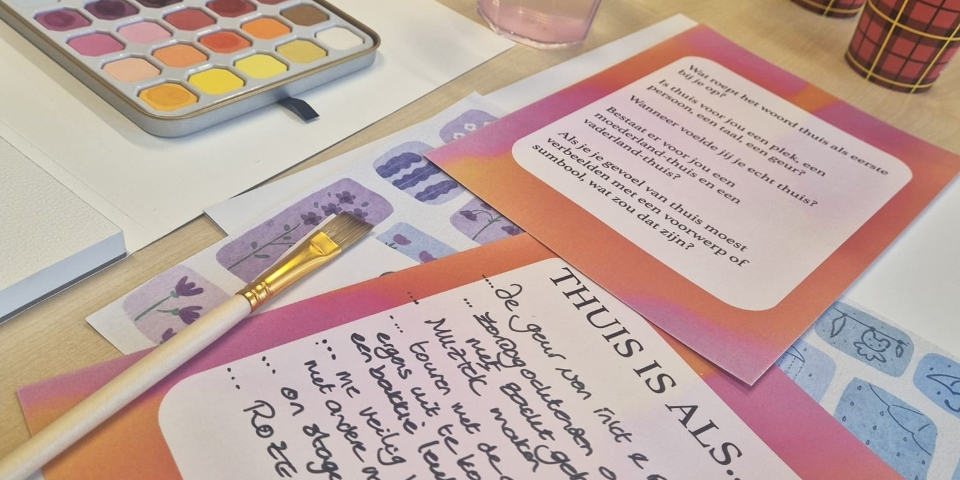 Wat roept het woord thuis als eerste
bij je op?
Is thuis voor jou een plek, een
persoon, een taal, een geur?
Wanneer voelde jij je echt thuis?
Bestaat er voor jou een
moederland-thuis en een
vaderland-thuis?
Als je je gevoel van thuis moest
verbeelden met een voorwerp of
symbool, wat zou dat zijn?
THUIS IS ALS...
... de geur van
...
... MUZIEK maken
bouwen met de
... ergens uit te
een bakkie
... me veilig
met andere
... on stage
... ROZE